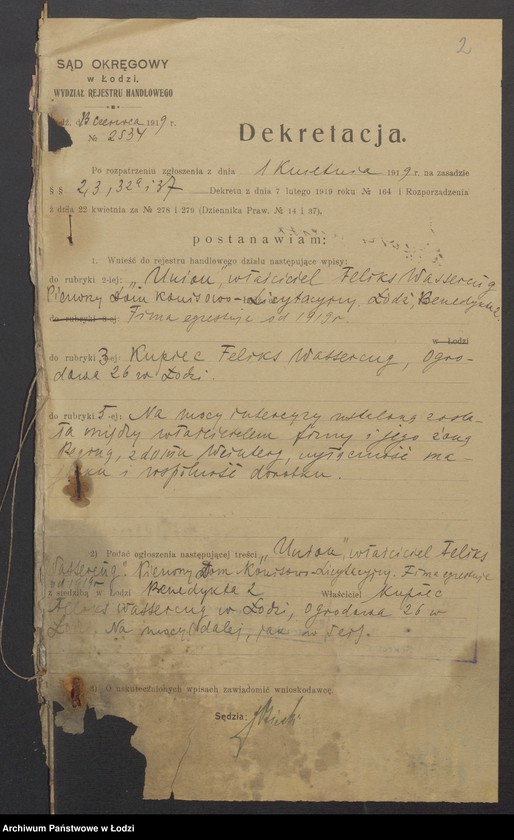 2
SĄD OKRĘGOWY
w Łodzi.
WYDZIAŁ REJESTRU HANDLOWEGO
czerwca 1919 r.
№ 2534
Dekretacja.
Po rozpatrzeniu zgłoszenia z dnia 1 Kwietnia 1919 r. na zasadzie
§ § 2, 3, 32a i 37 Dekretu z dnia 7 lutego 1919 roku № 164 i Rozporządzenia
z dnia 22 kwietnia za № 278 i 279 (Dziennika Praw. № 14 i 37),
postanawiam:
1. Wnieść do rejestru handlowego działu następujące wpisy:
do rubryki 2-iej: „Union", właściciel Feliks Wassercug
Pierwszy Dom Komisowo-Licytacyjny. Łódź, Benedykta 2
do rubryki Firma egzystuje od 1919 r
w Łodzi
do rubryki 3-ej: Kupiec Feliks Wassercug, Ogro-
dowa 26 w Łodzi.
do rubryki 5-ej: Na mocy intercyzy ustaloną zosta-
ła między właścicielem firmy i jego żoną
z domu Weinberg, wyłączność ma-
i wspólność dorobku.
2) Podać ogłoszenia następującej treści „Union", właściciel Feliks
Wassercug". Pierwszy Dom Komisowo-Licytacyjny. Firma egzystuje
od 1919 r
z siedzibą w Łodzi Benedykta 2 Właściciel kupiec
Feliks Wassercug w Łodzi, Ogrodowa 26 w
Na mocy i dalej, jak w 5 erj.
O uskutecznionych wpisach zawiadomić wnioskodawcę.
Sędzia:
Archiwum Państwowe w Łodzi